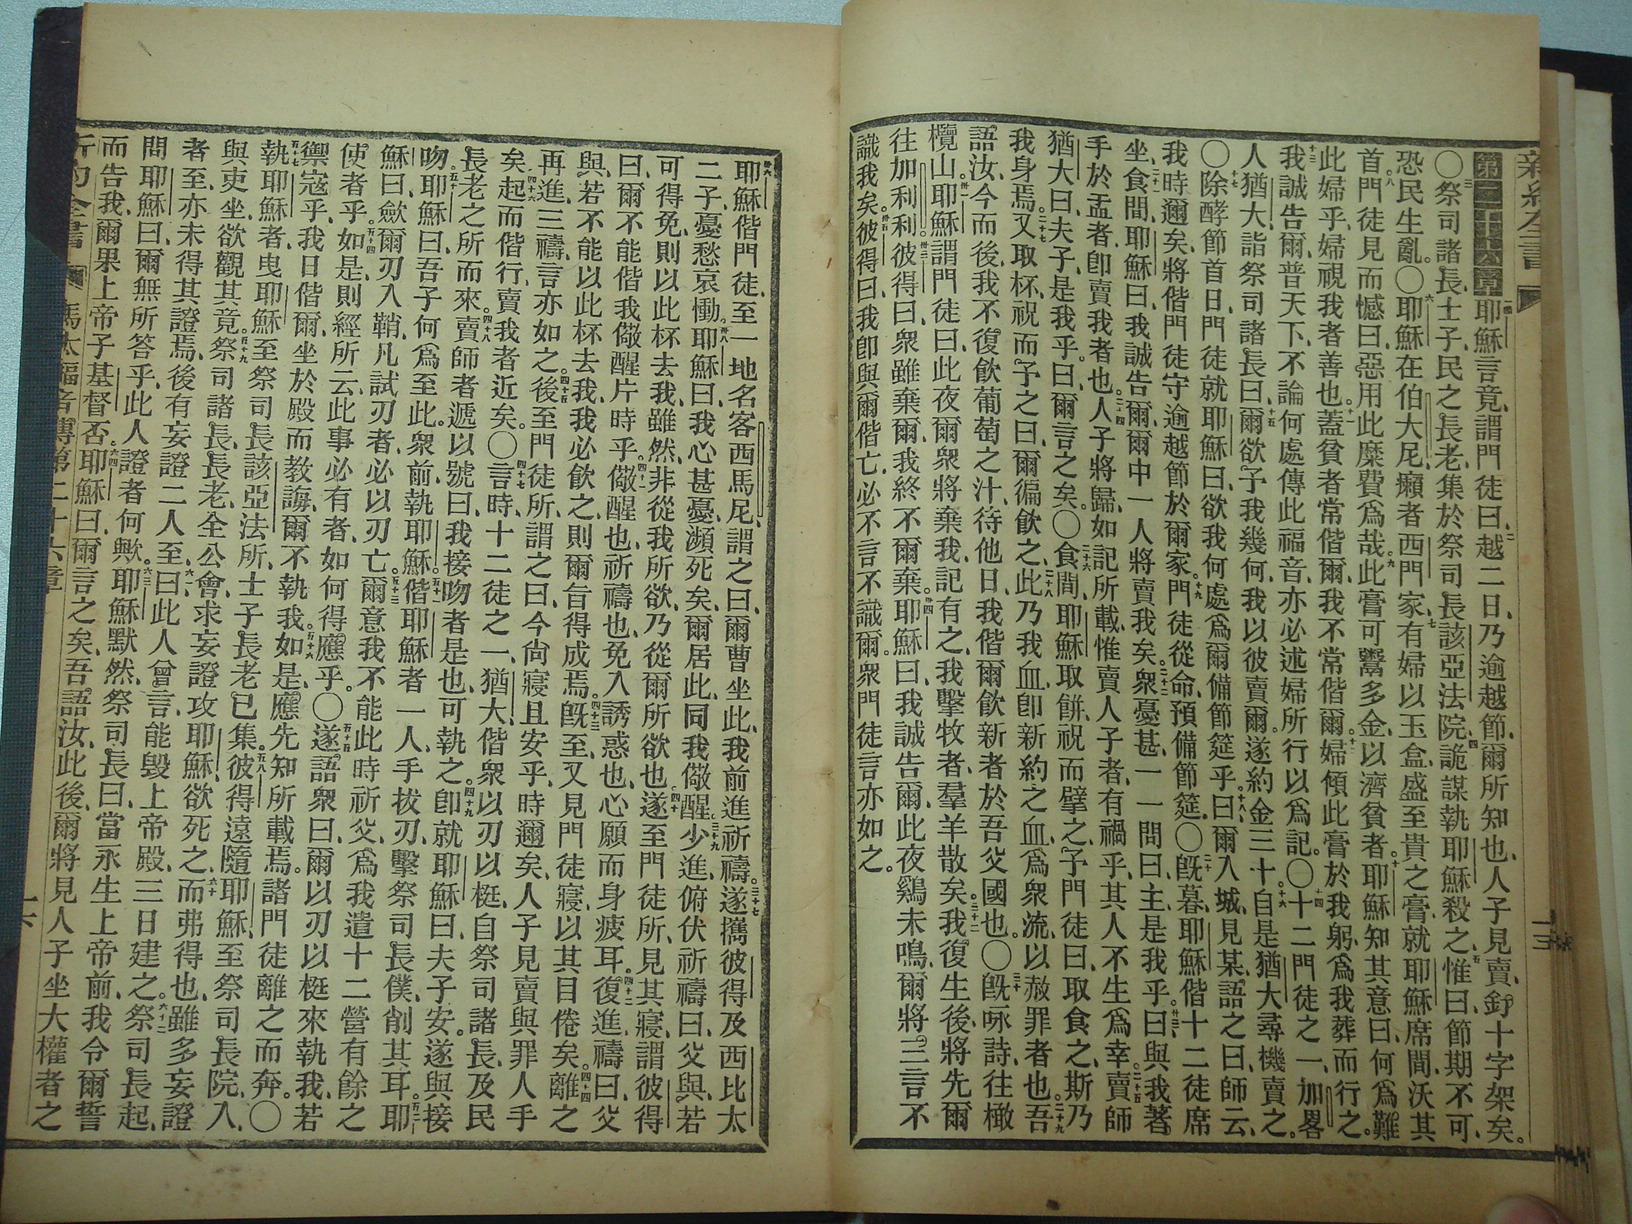 新約全書
第二十六章 耶穌言竟、謂門徒曰、越二日、乃逾越節、爾所知也、人子見賣、釘十字架矣。
〇祭司諸長、士子、民之長老、集於祭司長該亞法院、詭謀執耶穌殺之、惟曰、節期不可、
恐民生亂。〇耶穌在伯大尼、癩者西門家、有婦以玉盒盛至貴之膏、就耶穌席間、沃其
首、門徒見而憾曰、惡用此糜費爲哉、此膏可鬻多金、以濟貧者、耶穌知其意曰、何爲難
此婦乎、婦視我者善也、蓋貧者常偕爾、我不常偕爾、婦傾此膏於我躬、爲我葬而行之、
我誠告爾、普天下、不論何處傳此福音、亦必述婦所行、以爲記。〇十二門徒之一、加畧
人猶大、詣祭司諸長曰、爾欲予我幾何、我以彼賣爾、遂約金三十、自是猶大尋機賣之。
〇除酵節首日、門徒就耶穌曰、欲我何處爲爾備節筵乎、曰、爾入城、見某、語之曰、師云、
我時邇矣、將偕門徒守逾越節於爾家、門徒從命、預備節筵。〇旣暮、耶穌偕十二徒席
坐、食間、耶穌曰、我誠告爾、爾中一人將賣我矣、衆憂甚、一一問曰、主、是我乎、曰、與我著
手於盂者、卽賣我者也、人子將歸、如記所載、惟賣人子者有禍乎、其人不生爲幸、賣師
猶大曰、夫子是我乎、曰、爾言之矣。〇食間、耶穌取餅、祝而擘之、予門徒曰、取食之、斯乃
我身焉、又取杯、祝而予之曰、爾徧飲之、此乃我血、卽新約之血、爲衆流、以赦罪者也、吾
語汝、今而後、我不復飲葡萄之汁、待他日、我偕爾飲新者於吾父國也。〇旣咏詩、往橄
欖山、耶穌謂門徒曰、此夜爾衆將棄我、記有之、我擊牧者、羣羊散矣、我復生後、將先爾
往加利利、彼得曰、衆雖棄爾、我終不爾棄、耶穌曰、我誠告爾、此夜鷄未鳴、爾將三言不
識我矣、彼得曰、我卽與爾偕亡、必不言不識爾、衆門徒言亦如之。
耶穌偕門徒、至一地名客西馬尼、謂之曰、爾曹坐此、我前進祈禱、遂攜彼得及西比太
二子、憂愁哀慟、耶穌曰、我心甚憂、瀕死矣、爾居此、同我儆醒、少進、俯伏祈禱曰、父與、若
可得免、則以此杯去我、雖然、非從我所欲、乃從爾所欲也、遂至門徒所、見其寢、謂彼得
曰、爾不能偕我儆醒片時乎、儆醒也、祈禱也、免入誘惑也、心願而身疲耳、復進、禱曰、父
與、若不能以此杯去我、我必飲之、則爾旨得成焉、旣至、又見門徒寢、以其目倦矣、離之
再進、三禱、言亦如之、後至門徒所、謂之曰、今尙寢且安乎、時邇矣、人子見賣與罪人手
矣、起而偕行、賣我者近矣。〇言時、十二徒之一、猶大偕衆以刃以梃、自祭司諸長、及民
長老之所而來、賣師者遞以號曰、我接吻者是也、可執之、卽就耶穌曰、夫子安、遂與接
吻、耶穌曰、吾子何爲至此、衆前執耶穌、偕耶穌者一人、手拔刃、擊祭司長僕、削其耳、耶
穌曰、歛爾刃入鞘、凡試刃者、必以刃亡、爾意我不能此時祈父、爲我遣十二營有餘之
使者乎、如是、則經所云、此事必有者、如何得應乎。〇遂語衆曰、爾以刃以梃來執我、若
禦寇乎、我日偕爾、坐於殿而敎誨、爾不執我、如是、應先知所載焉、諸門徒離之而奔。〇
執耶穌者、曳耶穌至祭司長該亞法所、士子長老已集、彼得遠隨耶穌、至祭司長院、入
與吏坐、欲觀其竟、祭司諸長、長老、全公會、求妄證攻耶穌、欲死之而弗得也、雖多妄證
者至、亦未得其證焉、後有妄證二人至、曰、此人曾言、能毀上帝殿、三日建之、祭司長起、
問耶穌曰、爾無所答乎、此人證者何歟、耶穌默然、祭司長曰、當永生上帝前、我令爾誓
而告我、爾果上帝子基督否、耶穌曰、爾言之矣、吾語汝、此後爾將見人子坐大權者之
新約全書 馬太福音傳第二十六章